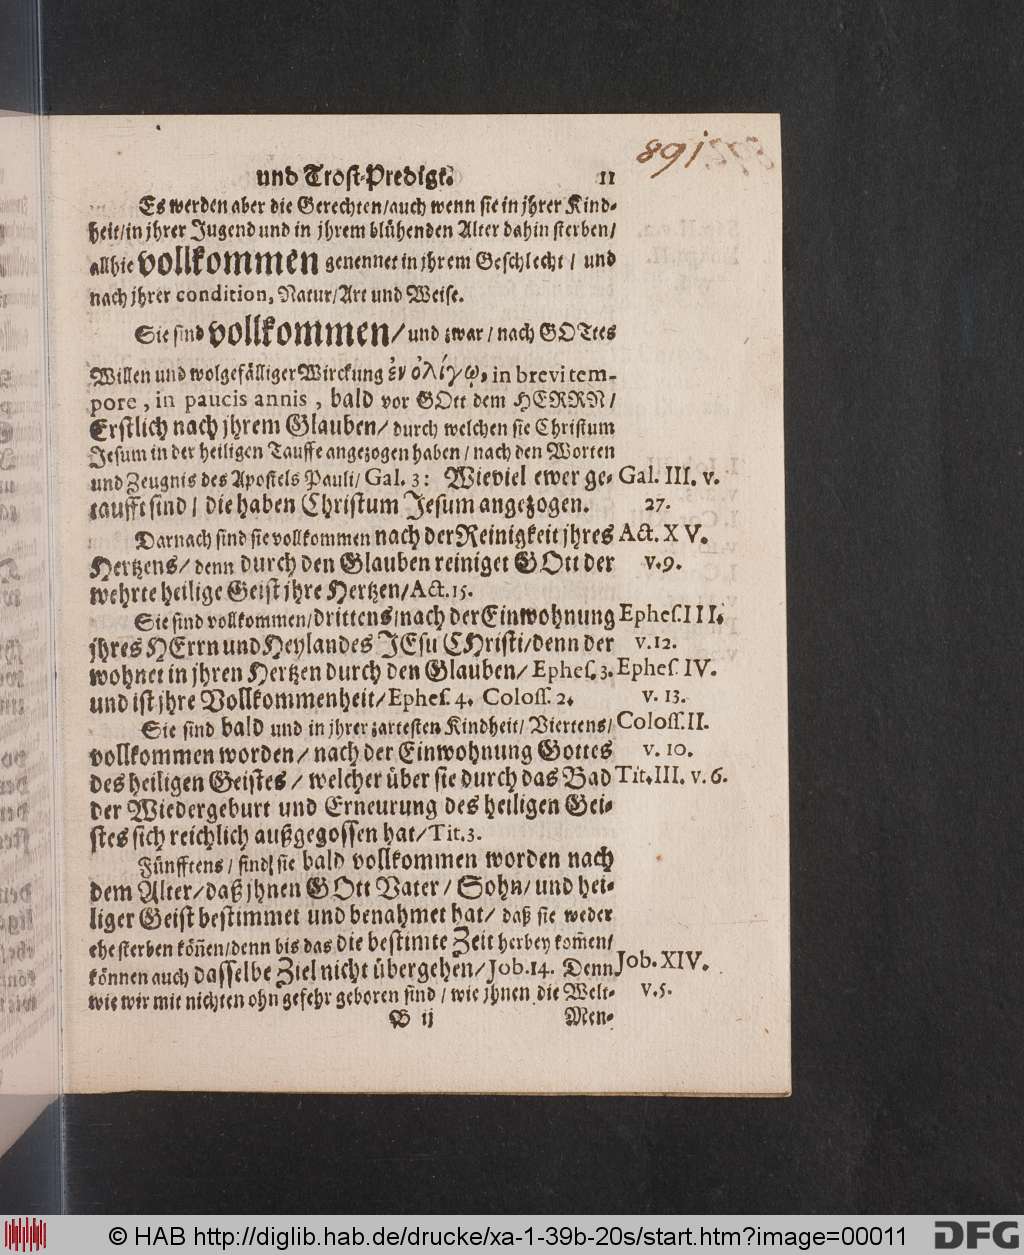 891
und Trost-Predigt. 11
Es werden aber die Gerechten/auch wenn sie in jhrer Kind-
heit/in jhrer Jugend und in jhrem blühenden Alter dahin sterben/
allhie vollkommen genennet in jhrem Geschlecht / und
nach jhrer condition, Natur/Art und Weise.
Sie sind vollkommen/ und zwar / nach GOTtes
Willen und wolgefälliger Wirckung ἐν ὀλίγῳ, in brevi tem-
pore, in paucis annis, bald vor GOtt dem HERRN/
Erstlich nach jhrem Glauben/ durch welchen sie Christum
Jesum in der heiligen Tauffe angezogen haben / nach den Worten
und Zeugnis des Apostels Pauli/ Gal. 3: Wieviel ewer ge- Gal. III. v.
taufft sind / die haben Christum Jesum angezogen. 27.
Darnach sind sie vollkommen nach der Reinigkeit jhres Act. XV.
Hertzens/ denn durch den Glauben reiniget GOtt der v.9.
wehrte heilige Geist jhre Hertzen/Act.15.
Sie sind vollkommen/drittens/nach der Einwohnung Ephes.III.
jhres HErrn und Heylandes JEsu CHristi/denn der v.12.
wohnet in jhren Hertzen durch den Glauben/ Ephes.3. Ephes. IV.
und ist jhre Vollkommenheit/Ephes. 4. Coloss. 2. v. 13.
Sie sind bald und in jhrer zartesten Kindheit/ Viertens/ Coloss.II.
vollkommen worden / nach der Einwohnung Gottes v. 10.
des heiligen Geistes / welcher über sie durch das Bad Tit.III. v. 6.
der Wiedergeburt und Erneurung des heiligen Gei-
stes sich reichlich außgegossen hat/Tit.3.
Fünfftens / sind sie bald vollkommen worden nach
dem Alter/daß jhnen GOtt Vater / Sohn/ und hei-
liger Geist bestimmet und benahmet hat/ daß sie weder
ehe sterben köñen/denn bis das die bestimte Zeit herbey kom̃en/
können auch dasselbe Ziel nicht übergehen/Job.14. Denn Job. XIV.
wie wir mit nichten ohn gefehr geboren sind / wie jhnen die Welt- v.5.
B ij Men-
© HAB http://diglib.hab.de/drucke/xa-1-39b-20s/start.htm?image=00011
DFG